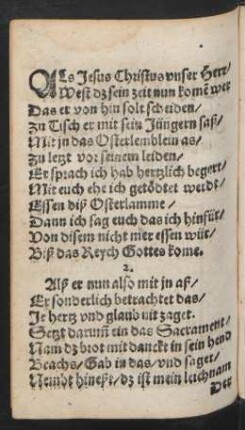 ALs Jesus Christus vnser Herr/
West dz sein zeit nun komẽ wer
Das er von hin solt scheiden/
Zu Tisch er mit sein Jüngern saß/
Mit jn das Osterlemblein as/
Zu letzt vor seinem leiden/
Er sprach ich hab hertzlich begert/
Mit euch ehe ich getödtet werdt/
Essen diß Osterlamme/
Dann ich sag euch das ich hinfür/
Von disem nicht mer essen wür/
Biß das Reych Gottes kome.
2.
Alß er nun also mit jn aß/
Er sonderlich betrachtet das/
Je hertz vnd glaub nit zaget.
Setzt darum̃ ein das Sacrament/
Nam dz brot mit danckt in sein hend
Brachs/ Gab in das/ vnd saget/
Nembt hin eßt/ dz ist mein leichnam
Der